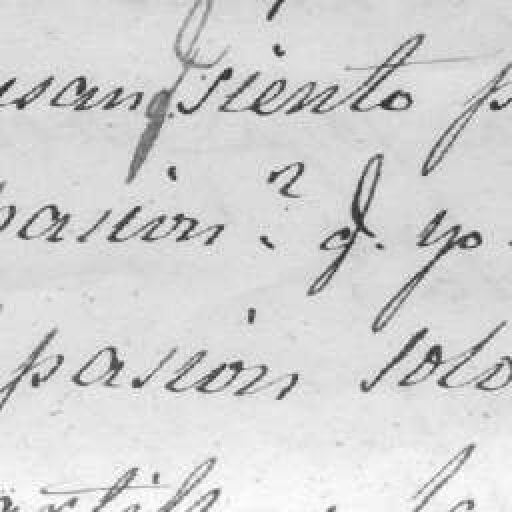 usan siento p
pasion? q. yo
pasion solo